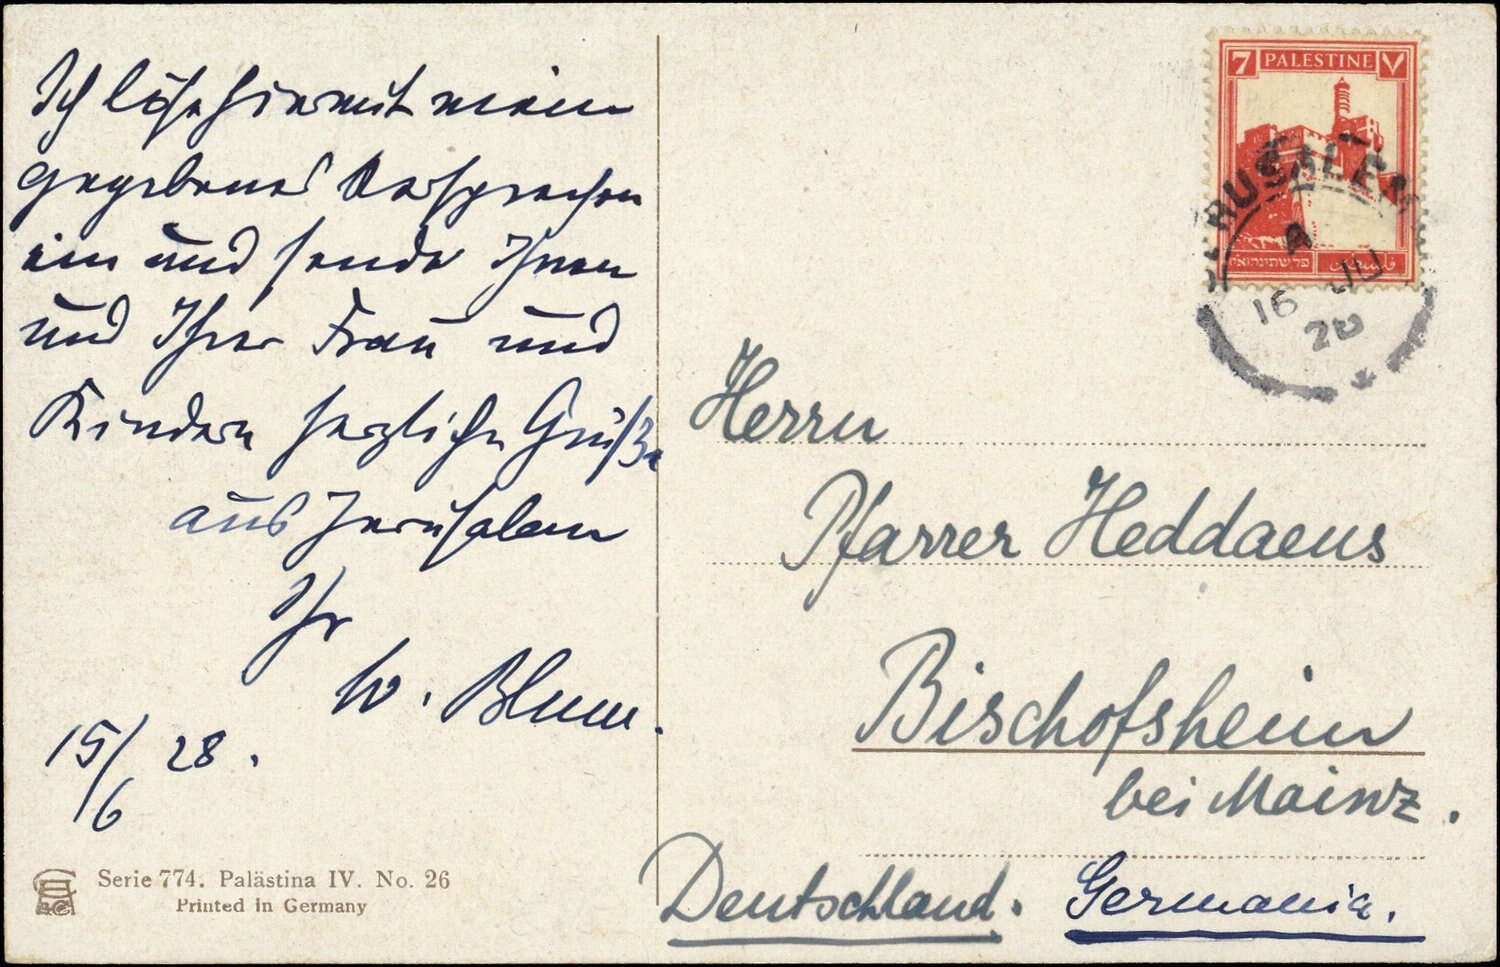 Ich löse hiermit mein
gegebenes Versprechen
ein und sende Ihnen
und Ihrer Frau und
Kindern herzliche Grüße
aus Jerusalem
Ihr
W. Blum.
15/6 28.
Serie 774. Palästina IV. No. 26
Printed in Germany
7 PALESTINE ٧
פלשתינה א״י فلسطين
JERUSALEM
A
16 JU
28
Herrn
Pfarrer Heddaeus
Bischofsheim
bei Mainz.
Deutschland. Germania.